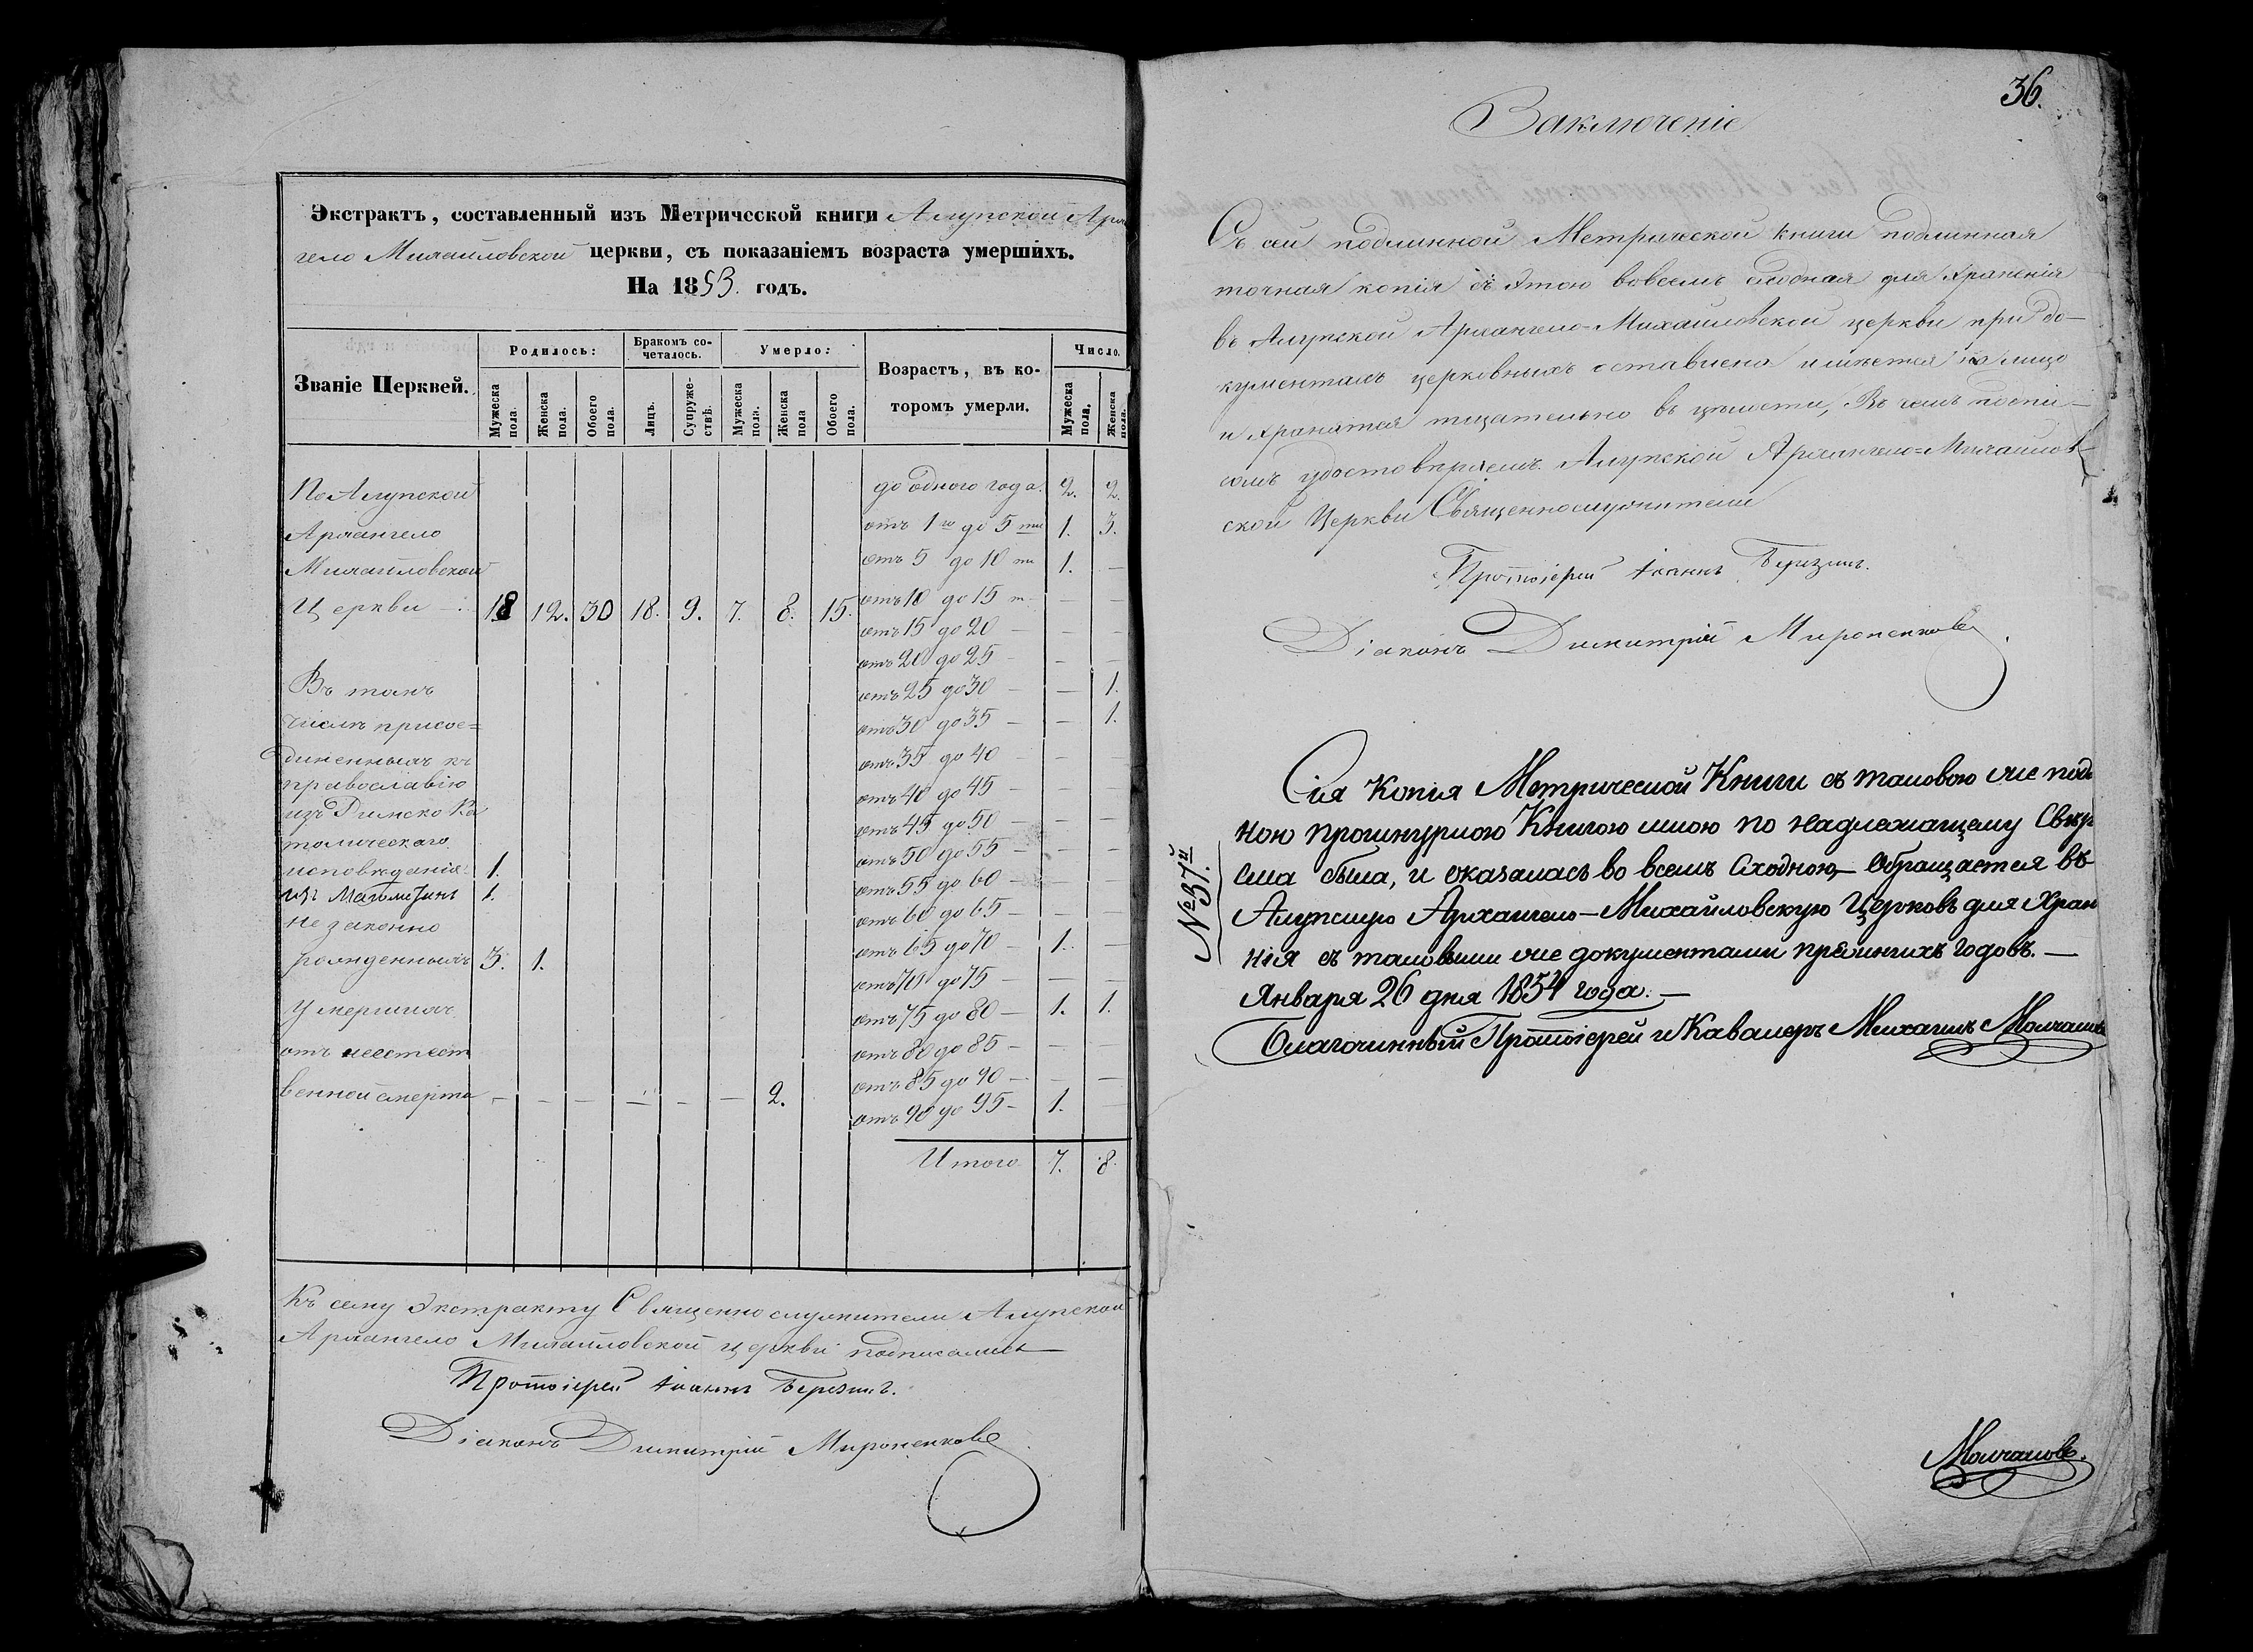 Экстрактъ, составленный изъ Метрической книги Алупской Арха
гело Михайловской церкви, съ показаніемъ возраста умершихъ.
На 1853. годъ.
Званіе Церквей.
Родилось:
Бракомъ со-
четалось.
Умерло:
Возрастъ, въ ко-
торомъ умерли.
Число.
Мужеска пола.
Женска пола.
Обоего пола.
Лицъ.
Супруже-
ствъ.
Мужеска пола.
Женска пола
Обоего пола.
Мужеска пола.
Женска пола.
По Алупской
Архангело
Михайловской
Церкви 18 12. 30 18. 9. 7. 8. 15.
Въ томъ
числѣ присое=
диненныхъ къ
православію
изъ Римско Ка
толическаго
исповѣданія 1.
изъ Магометанъ 1.
не законно
рожденныхъ 3. 1.
Умершихъ
отъ неестест
венной смерти — — — — — — 2.
до одного года. 2. 2.
отъ 1го до 5ти 1. 3.
отъ 5 до 10ти 1. —
отъ 10 до 15 т — —
отъ 15 до 20 — — —
отъ 20 до 25 — — —
отъ 25 до 30 — — 1.
отъ 30 до 35 — — 1.
отъ 35 до 40 — — —
отъ 40 до 45 — — —
отъ 45 до 50 — — —
отъ 50 до 55 — — —
отъ 55 до 60 — —
отъ 60 до 65 — —
отъ 65 до 70 — 1. —
отъ 70 до 75 — — —
отъ 75 до 80 — 1. 1.
отъ 80 до 85 — — —
отъ 85 до 90 — — —
отъ 90 до 95 — 1. —
Итого 7. 8.
Къ сему Экстракту Священнослужители Алупской
Архангело Михайловской церкви подписались
Протоіерей Іоаннъ Березинъ.
Діаконъ Димитрій Мироненковъ
36.
Заключеніе
Съ сей подлинной Метрической книги подлинная
точная копія съ этою вовсемъ сходная для храненія
въ Алупской Архангело-Михайловской церкви при до-
кументахъ церковныхъ оставлена и имѣется на лицо
и хранится тщательно въ цѣлости, Въ чемъ подпи-
сомъ удостовѣряемъ Алупской Архангело=Михайлов-
ской Церкви Священнослужители
Протоіерей Іоаннъ Березинъ.
Діаконъ Димитрій Мироненковъ
№ 37й
Сія Копія Метрической Книги съ таковою же подл
ною прошнурною Книгою мною по надлежащему Свѣр
ена была, и оказалась во всемъ Сходною,— Обращается въ
Алупскую Архангело-Михайловскую Церковь для Хран
нія съ таковыми же документами прежнихъ годовъ. —
Января 26 дня 1854 года. —
Благочинный Протоіерей и Кавалеръ Михаилъ Молчановъ
Молчановъ.